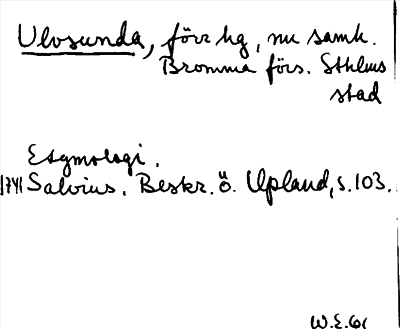 Ulvsunda, förr hg, nu samh.
Bromma förs. Sthlms
stad
Etymologi.
1741 Salvius. Beskr. ö. Upland, s. 103.